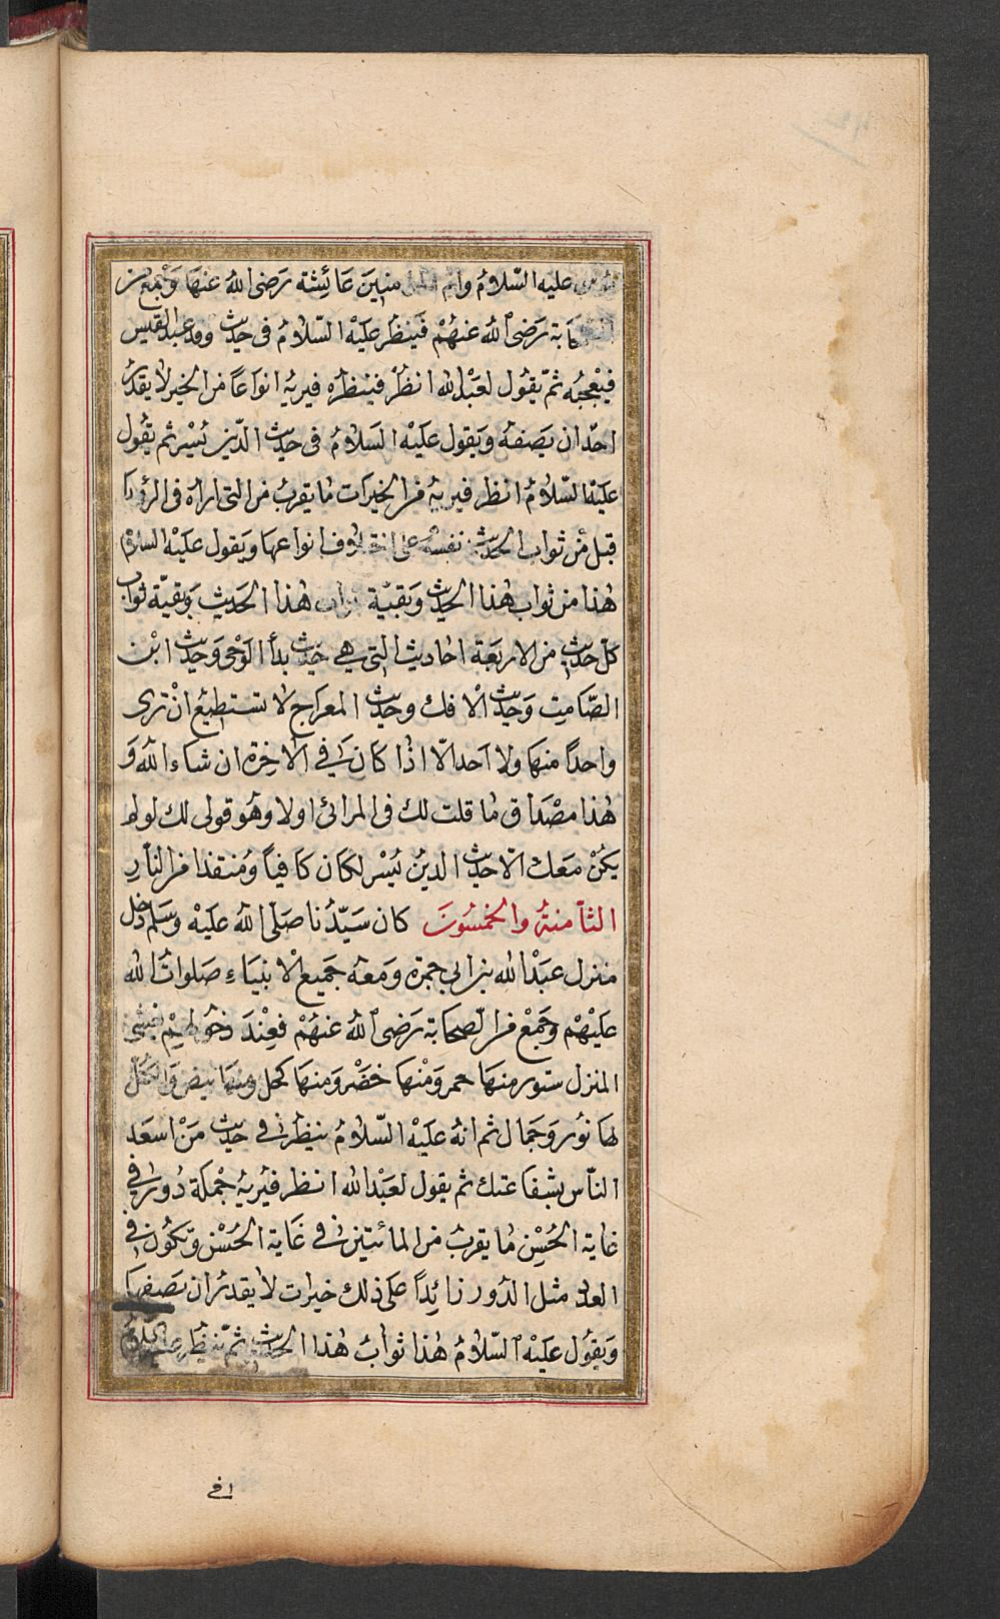 عليه السّلامُ وام منينَ عَائِشَة رَضىَ اللهُ عنهَا وَجْمع من
بة رَضىَ اللهُ عنهُمْ فَينظُر عليْه السّلامُ فى حَديث وفد عبد القيس
فيعْجبُه ثمّ يقُول لعَبْد الله انظُرْ فينظرُه فيريهُ انواعاً من الخير لا يقدرُ
احدٌ ان يَصَفهُ ويَقول عليْه السَلامُ فى حديث الدّين يُسْر ثم يَقُول
عليْه السّلامُ انظر فيريهُ من الخيرَات مَا يقربُ من التى اراهُ فى الرؤيا
قبل مْن ثواب الحديث نفسهُ على اختلاف انواعهَا ويَقول عليْه السلامُ
هٰذا من ثواب هٰذا الحديث وَبقيّة ثواب هٰذا الحَديث وَبقيّة ثواب
كلّ حديث من الاربَعَة احَاديث التى هي حَديث بدأ الوَحْى وَحديث ابْن
الصّامِت وَحديث الْافك وحَديث المعرَاج لا تستطيعُ انْ ترى
واحداً منهَا ولا احد الّا اذٰا كانَ فى الْاخِرَة ان شاء اللهُ وَ
هٰذا مصْدَاق مٰا قلت لك فى المرائى اولا وهُو قولى لك لو لم
يكُنْ مَعَك الّا حديث الدينُ يُسْر لكان كافياً وَمُنقذا من النّارِ
الثّامنةُ والخمْسُونَ كان سَيّدُنا صَلّى اللهُ عليْه وَسَلم دخل
منزل عبَدْ الله بن ابى جمرَة وَمَعهُ جَميع الْانبيَاءِ صَلواتُ الله
عليْهْم وجَمعْ من الصّحابَة رَضىَ اللهُ عنهُمْ فعِنْدَ دخُولهمْ
المنزل ستور منهَا حمر وَمنْهَا خضْر وَمنهَا كحل ومنهَا بيض وَالكل
لهَا نوُر وَجمَال ثم انهُ عليْه السّلامُ ينظرُ في حديث مَنْ اسعَد
النّاس بشفاعَتك ثم يقول لعَبْد الله انظر فيُريهُ جُملة دُور فى
غاية الحُسْن مٰا يقربُ من المائتين في غاية الحُسْن وَتكون فى
العلو مثل الدّور زائِداً عَلى ذلك خيرات لا يقدرُ ان يَصفهَا
وَيقُول عليْه السّلامُ هٰذا ثوابُ هٰذا الحديث ثمّ ينظر عليه السلام